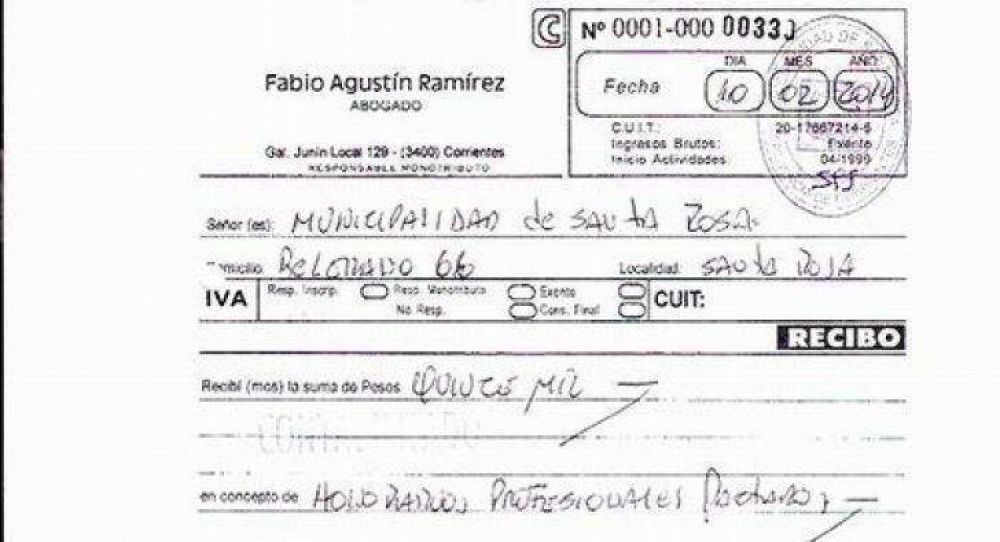 C Nº 0001-000 0033
DIA MES AÑO
Fecha 10 02 2014
Fabio Agustín Ramírez
ABOGADO
C.U.I.T.: 20-17667214-6
Ingresos Brutos: Exento
Inicio Actividades: 04-1999
Gal. Junín Local 129 - (3400) Corrientes
RESPONSABLE MONOTRIBUTO
Señor (es): MUNICIPALIDAD de SANTA ROSA
Domicilio BELGRANO 66 Localidad: SANTA ROSA
IVA Resp. Inscrip. Resp. Monotributo Exento CUIT:
No Resp. Cons. Final
RECIBO
Recibí (mos) la suma de Pesos QUINCE MIL
en concepto de HONORARIOS PROFESIONALES